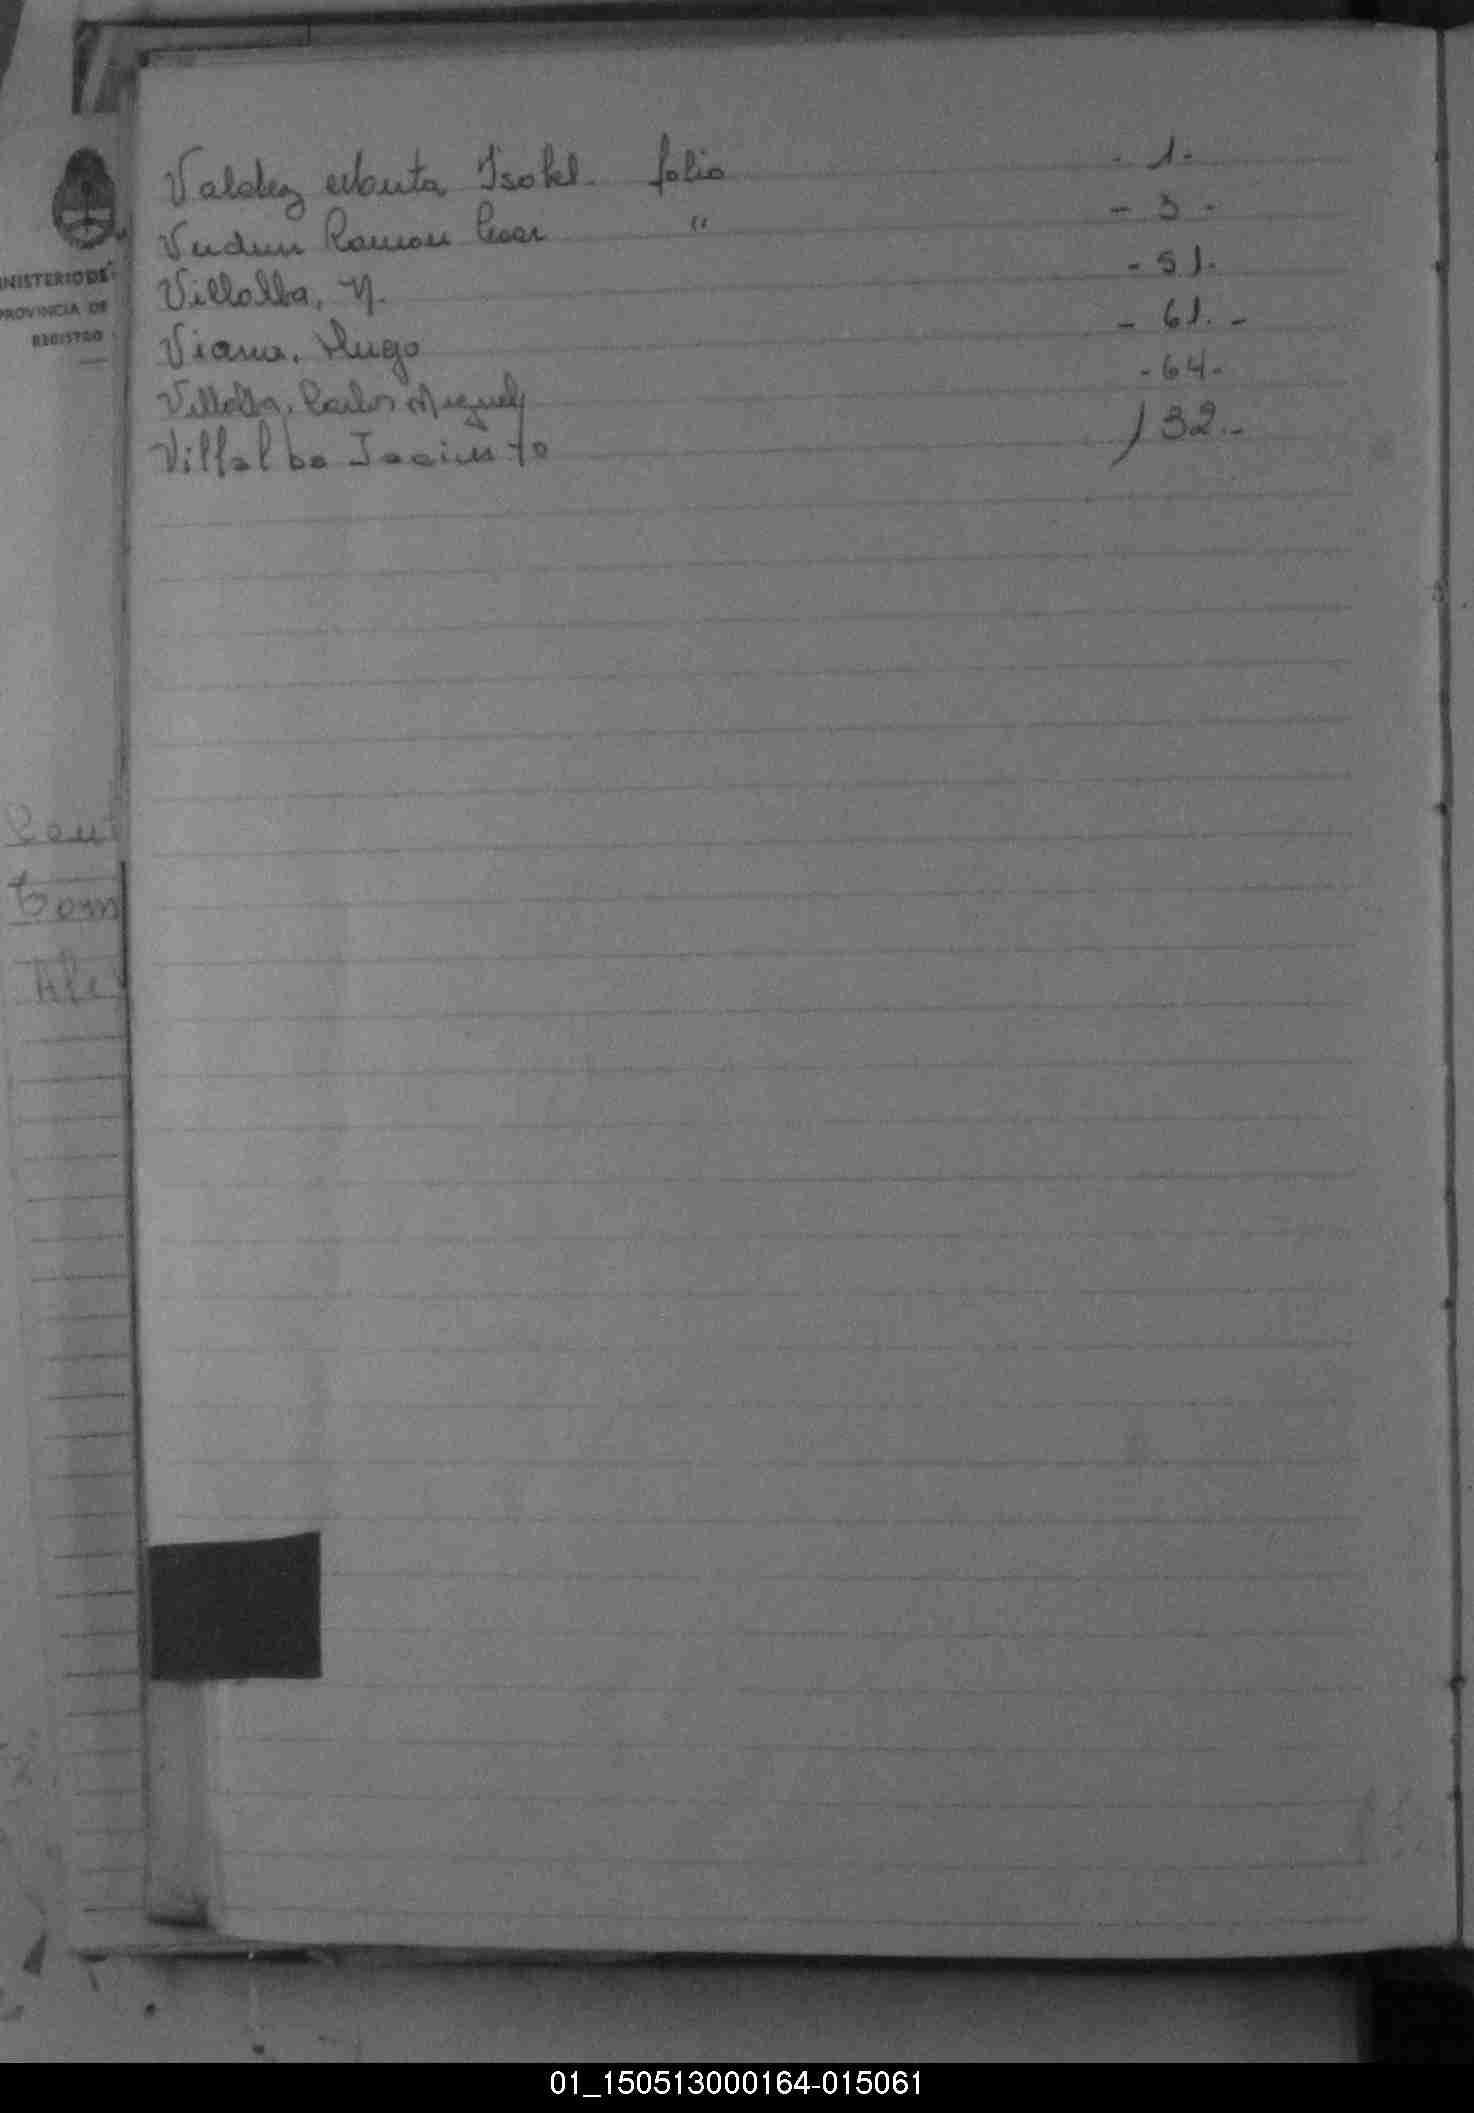 Valdez Marta Isabel. folio - 1 -
Verdun Ramon Cesar " - 3 -
Villalba, N. - 51.
Viana, Hugo - 61. -
Villalba, Carlos Miguel - 64 -
Villalba Jacinto ) 32. -
MINISTERIO DE
PROVINCIA DE
REGISTRO
01_150513000164-015061